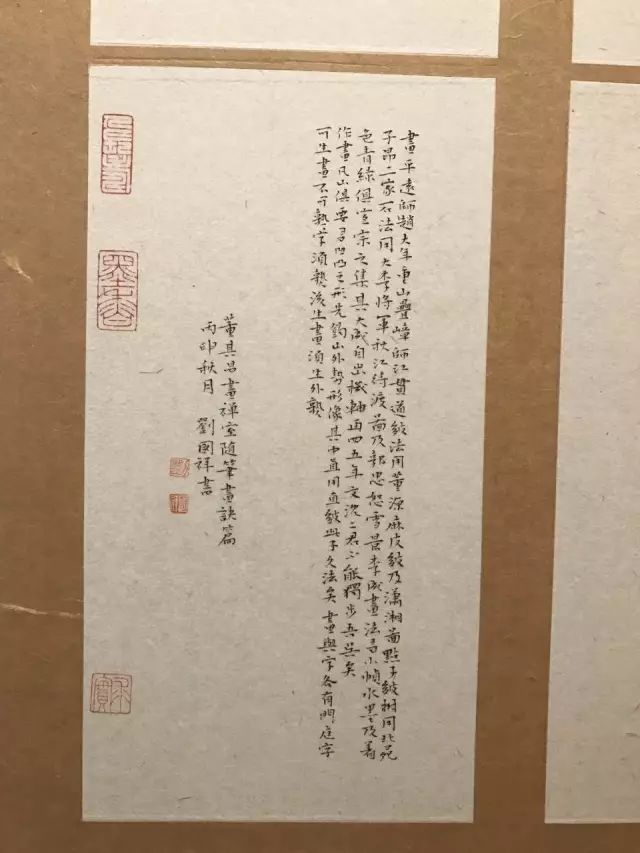 畫平遠師趙大年重山疊嶂師江貫道皴法用董源麻皮皴及瀟湘圖點子皴樹用北苑
子昂二家石法用大李將軍秋江待渡圖及郭忠恕雪景李成畫法有小幀水墨及着
色青綠俱宜宗之集其大成自出機軸再四五年文沈二君不能獨步吾吳矣
作畫凡山俱要有凹凸之形先鈎山外勢形像其中直用直皴此子久法矣畫與字各有門庭字
可生畫不可熟字須熟後生畫須生外熟
董其昌畫禪室隨筆畫訣篇
丙申秋月 劉國祥書